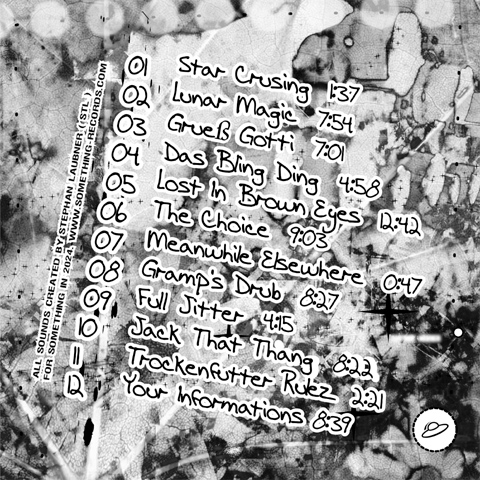 ALL SOUNDS CREATED BY STEPHAN LAUBNER (STL')
FOR SOMETHING IN 2024, WWW.SOMETHING-RECORDS.COM
01 Star Crusing 1:37
02 Lunar Magic 7:54
03 Grueß Gotti 7:01
04 Das Bling Ding 4:58
05 Lost In Brown Eyes 12:42
06 The Choice 9:03
07 Meanwhile Elsewhere 0:47
08 Gramp's Drub 8:27
09 Full Jitter 4:15
10 Jack That Thang 8:22
11 Trockenfutter Rulez 2:21
12 Your Informations 8:39